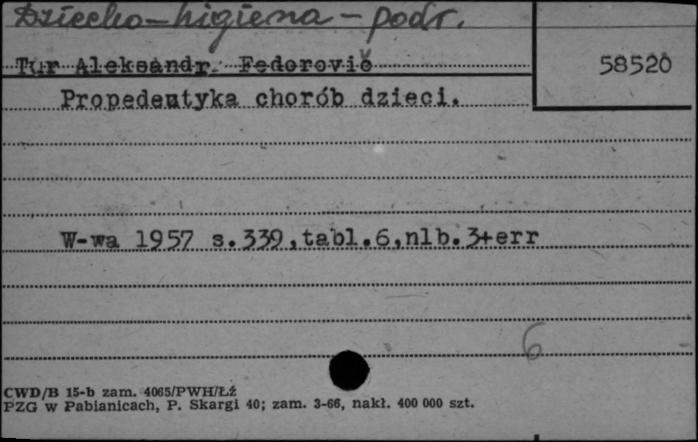 Dziecko - higiena - podr.
58520
Tur Aleksandr Fedorovič
Propedeutyka chorób dzieci.
W-wa 1957 s.339,tabl.6,nlb.3+err
6
CWD/B 15-b zam. 4065/PWH/Łź
PZG w Pabianicach, P. Skargi 40; zam. 3-66, nakł. 400 000 szt.